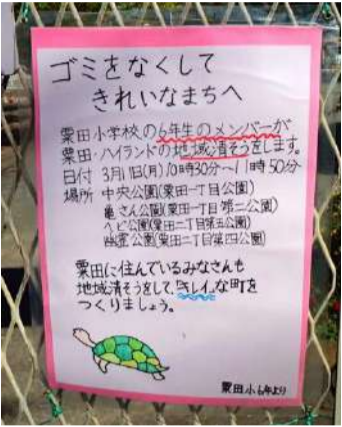 ゴミをなくして
きれいなまちへ
粟田小学校の6年生のメンバーが
粟田・ハイランドの地域清そうをします。
日付 3月11日(月)10時30分～11時50分
場所 中央公園(粟田一丁目公園)
亀さん公園(粟田一丁目第二公園)
ヘビ公園(粟田二丁目第五公園)
幽霊公園(粟田二丁目第四公園)
粟田に住んでいるみなさんも
地域清そうをして、「キレイ」な町を
つくりましょう。
粟田小6年より